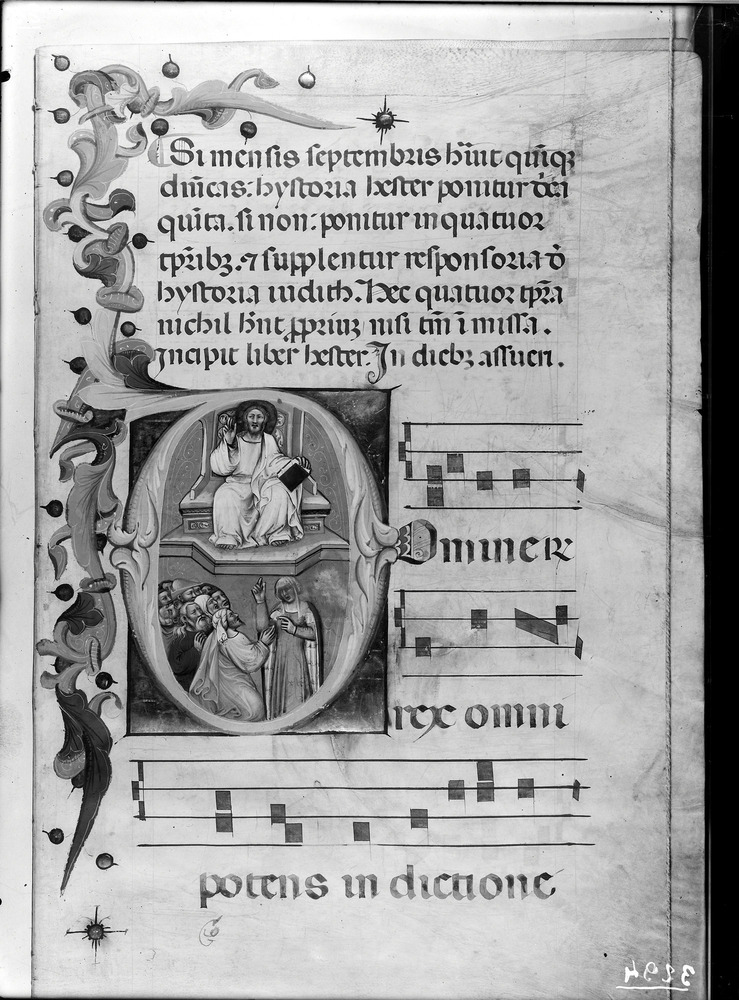 Si mensis septembris hn̄t quīqꝫ
dn̄icas: hystoria hester ponitur
quīta. si non: ponitur in quatuor
tp̄ribꝫ. ⁊ supplentur responsoria
hystoria iudith. Hec quatuor tp̄ra
nichil hn̄t ꝓpriuꝫ nisi tm̄ ī missa.
Incipit liber hester. In diebꝫ assueri.
Omine rex
rex omni
potens in dictione
3294